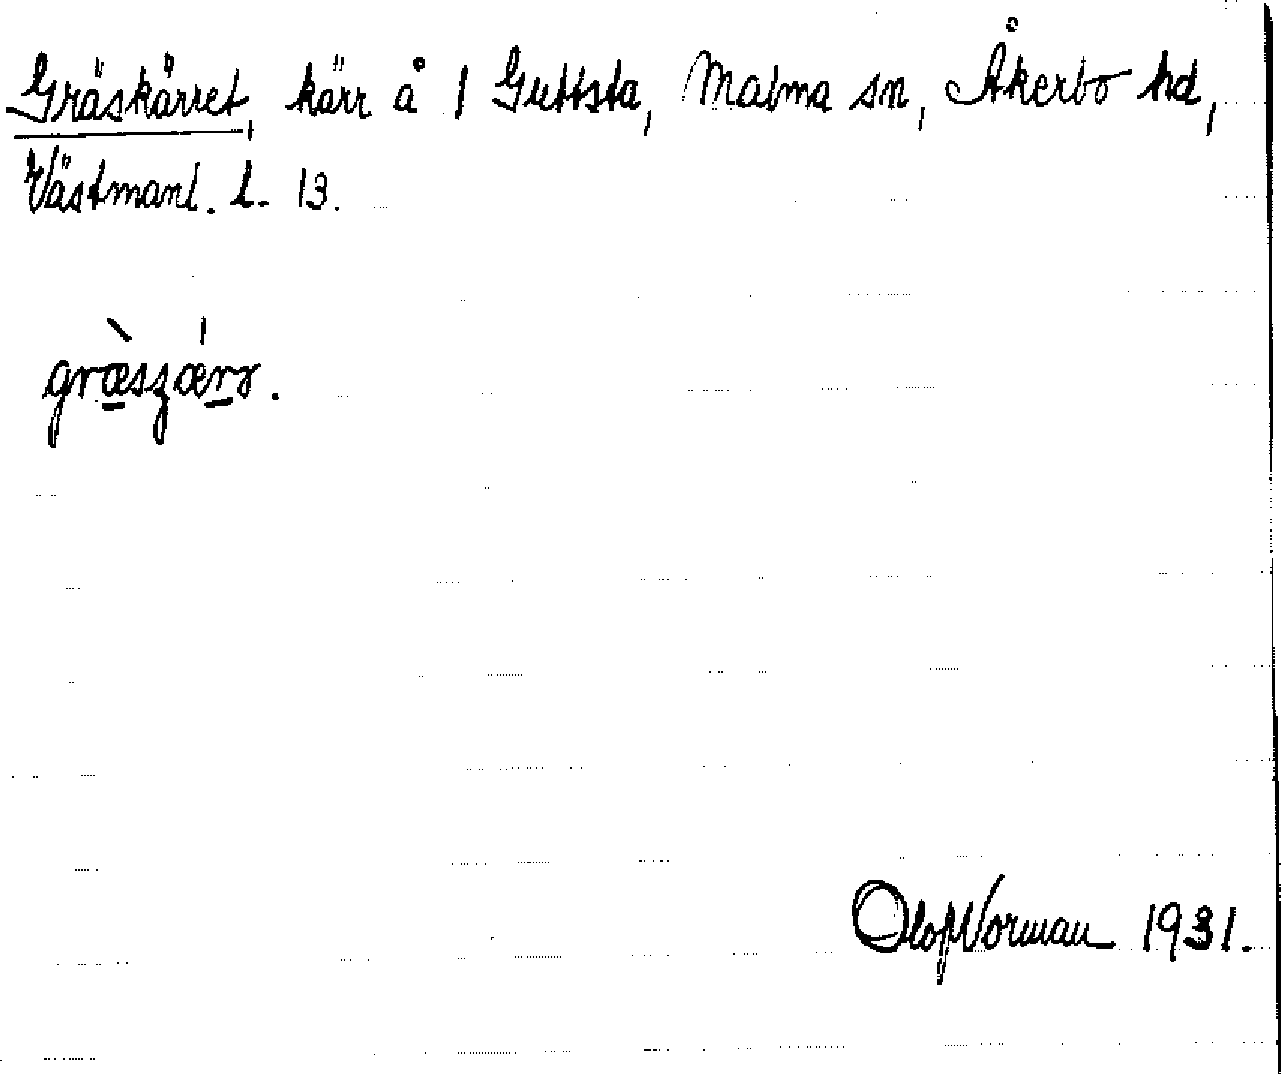 Gräskärret, kärr å 1 Guttsta, Malma sn, Åkerbo hd,
Västmanl. l. 13.
græ̀szǽrə.
Olof Norman 1931.